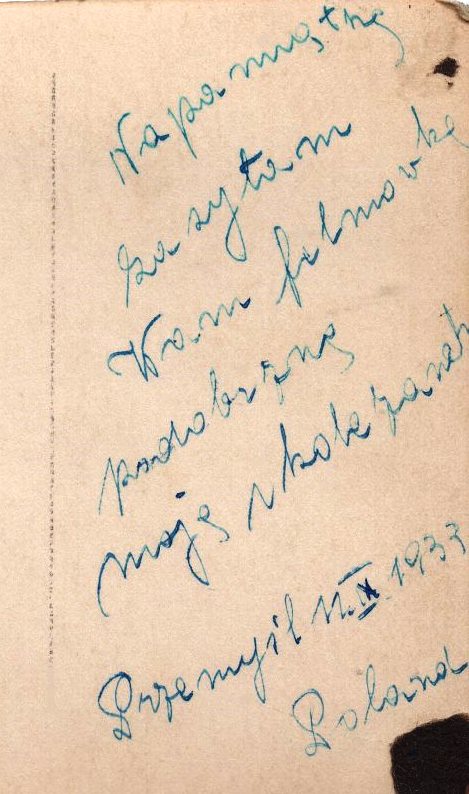 Na pamiątkę
zasyłam
Wam filmowkę
podobizną
moją z koleżanek
Przemyśl 11.IX.1933
Poland